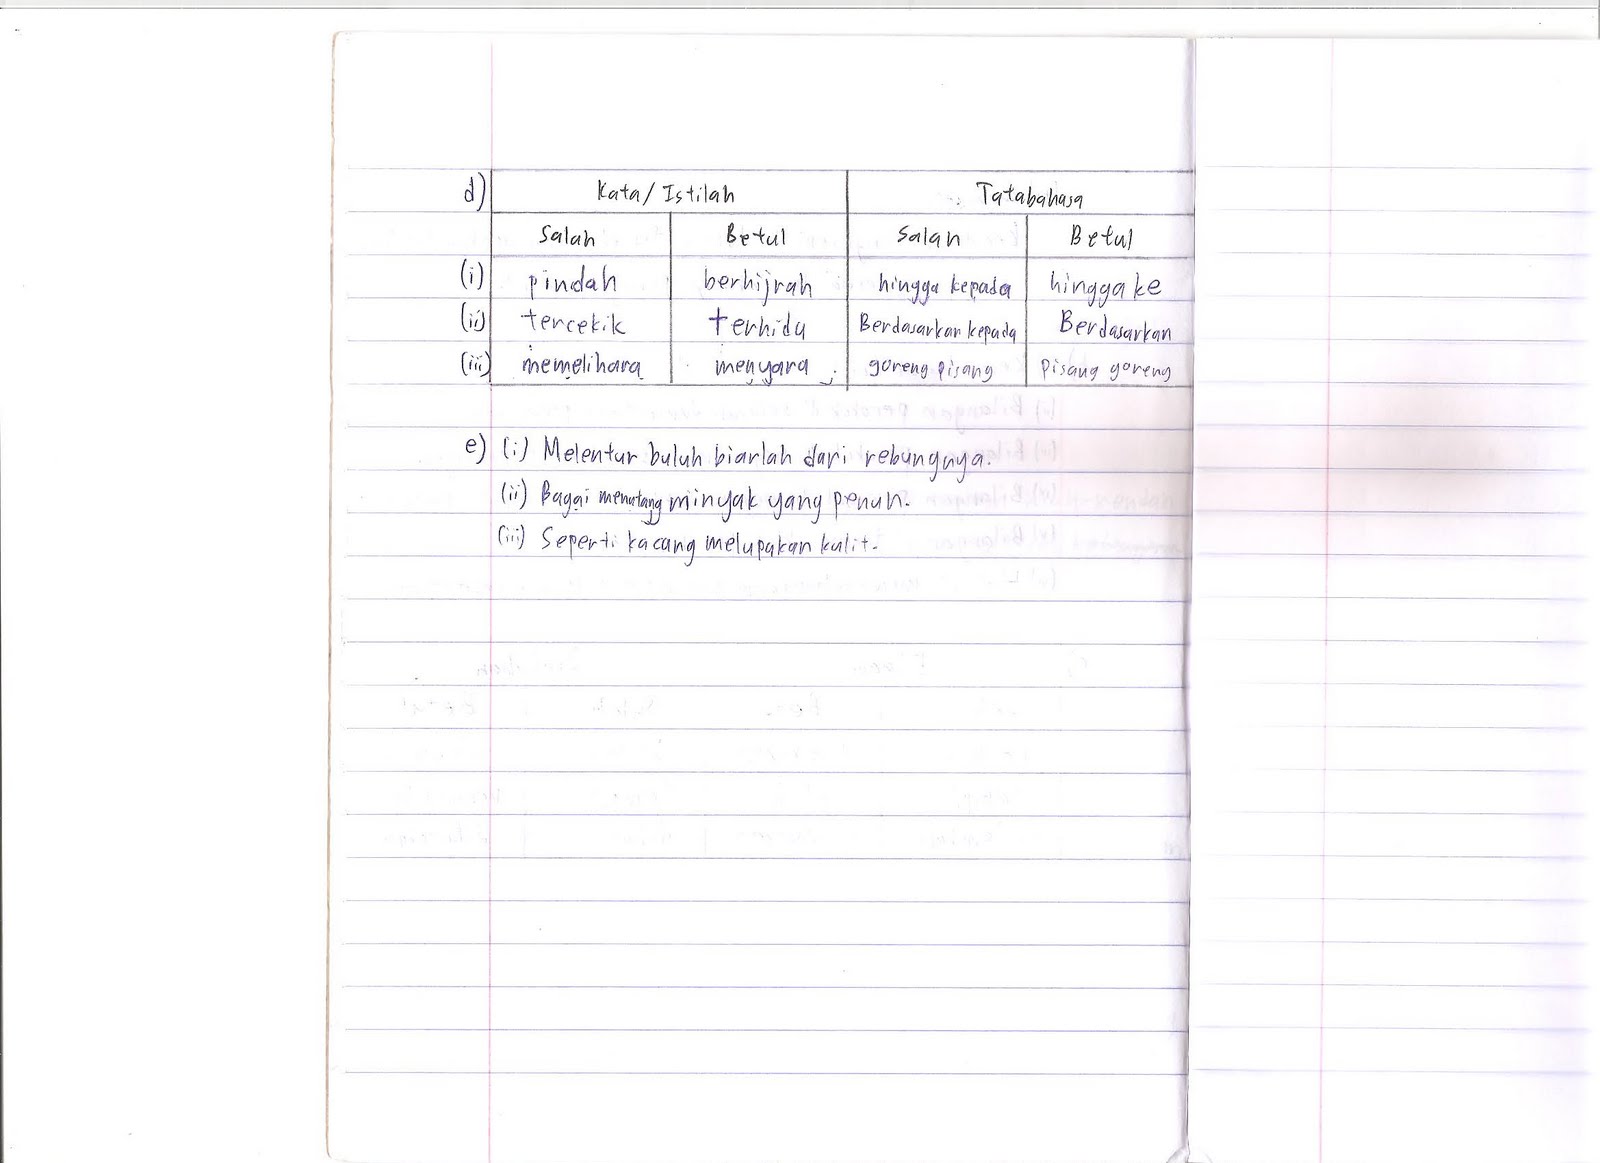 d) Kata/Istilah Tatabahasa
Salah Betul Salah Betul
(i) pindah berhijrah hingga kepada hingga ke
(ii) tercekik terhidu Berdasarkan kepada Berdasarkan
(iii) memelihara menyara goreng pisang pisang goreng
e) (i) Melentur buluh biarlah dari rebungnya.
(ii) Bagai menatang minyak yang penuh.
(iii) Seperti kacang melupakan kulit.